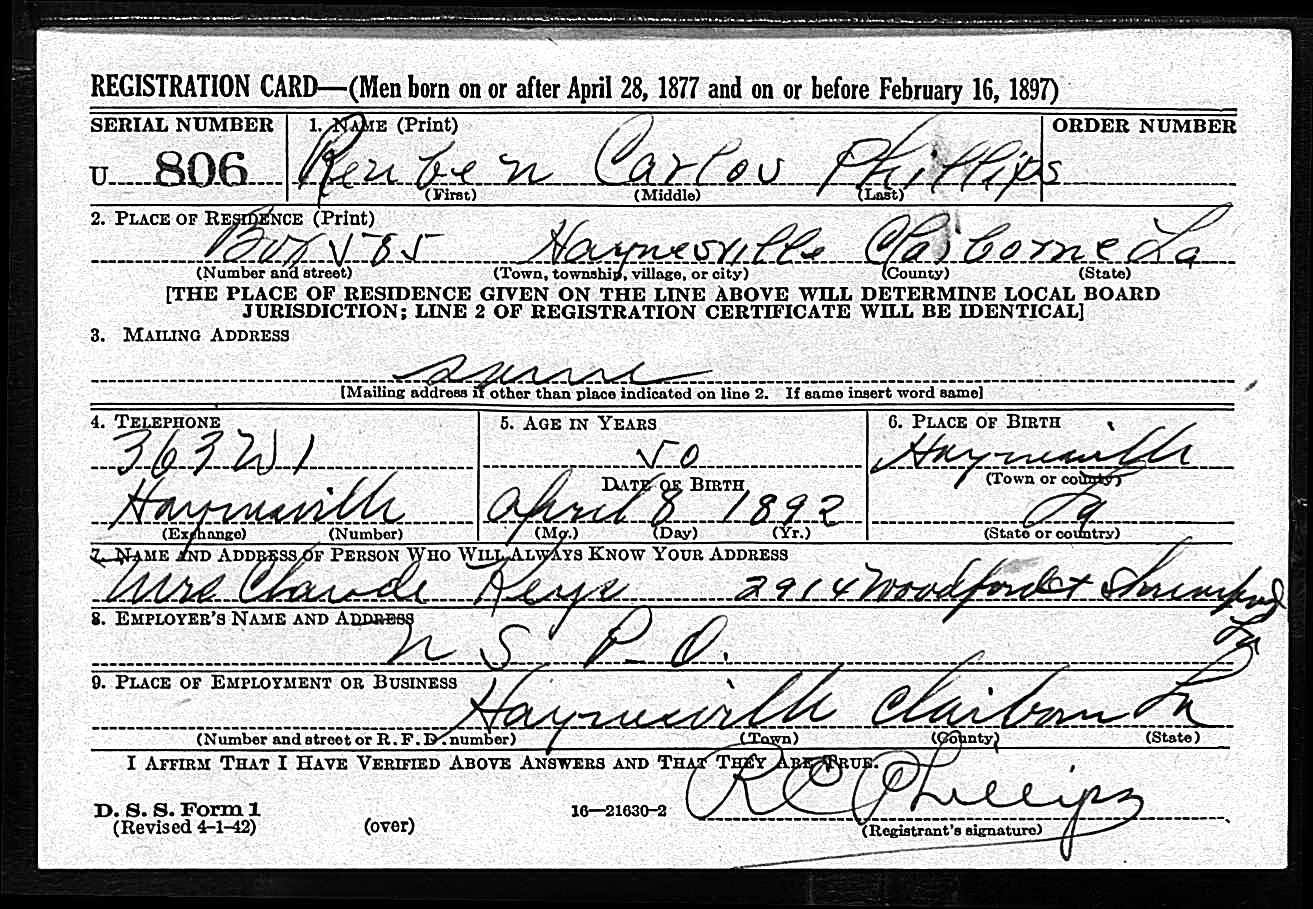 REGISTRATION CARD—(Men born on or after April 28, 1877 and on or before February 16, 1897)
SERIAL NUMBER 1. NAME (Print) ORDER NUMBER
U 806 Reuben Carlos Phillips
(First) (Middle) (Last)
2. PLACE OF RESIDENCE (Print)
Box 585 Haynesville Claiborne La
(Number and street) (Town, township, village, or city) (County) (State)
[THE PLACE OF RESIDENCE GIVEN ON THE LINE ABOVE WILL DETERMINE LOCAL BOARD
JURISDICTION; LINE 2 OF REGISTRATION CERTIFICATE WILL BE IDENTICAL]
3. MAILING ADDRESS
same
[Mailing address if other than place indicated on line 2. If same insert word same]
4. TELEPHONE 5. AGE IN YEARS 6. PLACE OF BIRTH
363 W 1 50 Haynesville
DATE OF BIRTH (Town or county)
Haynesville April 8 1892 La
(Exchange) (Number) (Mo.) (Day) (Yr.) (State or country)
7. NAME AND ADDRESS OF PERSON WHO WILL ALWAYS KNOW YOUR ADDRESS
Mrs Claude Keys 2914 Woodford St Shreveport
La
8. EMPLOYER'S NAME AND ADDRESS
U S P. O.
9. PLACE OF EMPLOYMENT OR BUSINESS
Haynesville Claiborn La
(Number and street or R. F. D. number) (Town) (County) (State)
I AFFIRM THAT I HAVE VERIFIED ABOVE ANSWERS AND THAT THEY ARE TRUE.
R C Phillips
D. S. S. Form 1
(Revised 4-1-42) (over) 16—21630-2 (Registrant's signature)